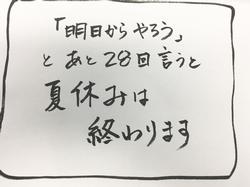 「明日からやろう」
とあと28回言うと
夏休みは
終わります